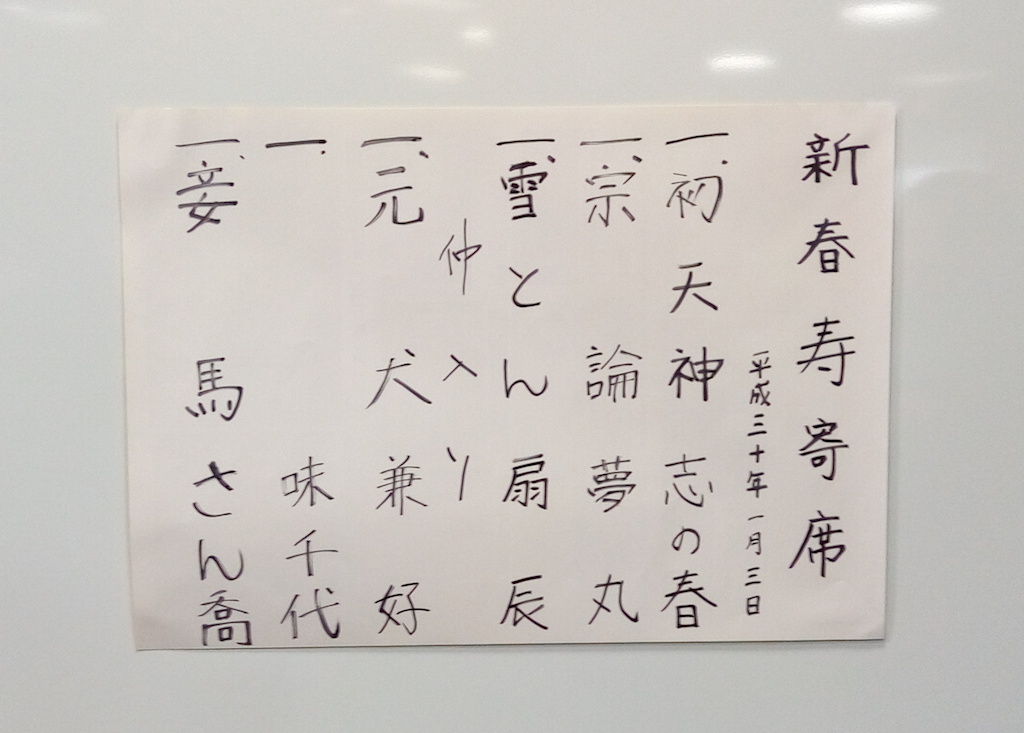 新春寿寄席
平成三十年一月三日
一、初天神 志の春
一、宗論 夢丸
一、雪とん 扇辰
仲入り
一、元犬 兼好
一、 味千代
一、妾馬 さん喬